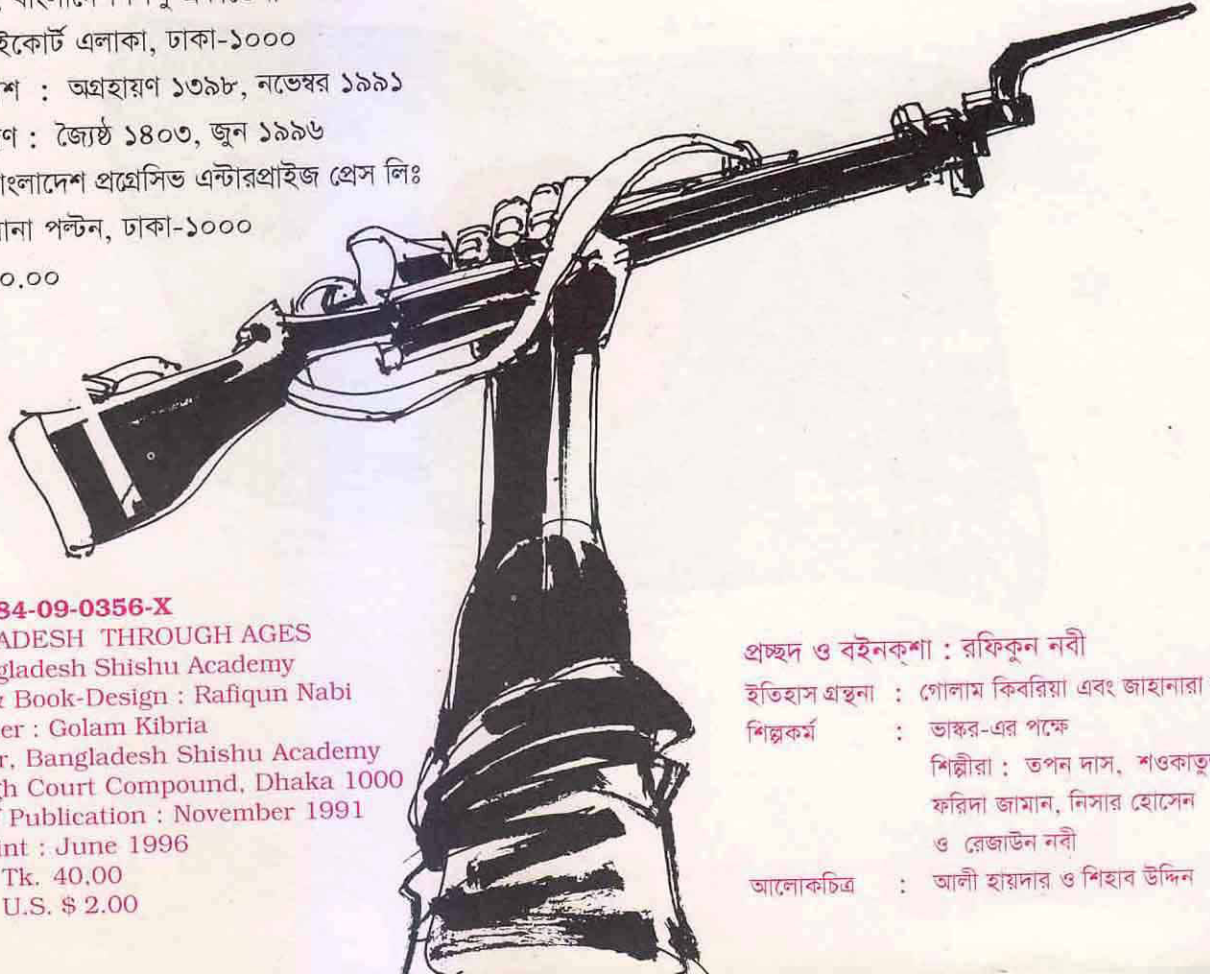 ইকোর্ট এলাকা, ঢাকা-১০০০
শ : অগ্রহায়ণ ১৩৯৮, নভেম্বর ১৯৯১
ণ : জ্যৈষ্ঠ ১৪০৩, জুন ১৯৯৬
াংলাদেশ প্রগ্রেসিভ এন্টারপ্রাইজ প্রেস লিঃ
ানা পল্টন, ঢাকা-১০০০
০.০০
84-09-0356-X
ADESH THROUGH AGES
gladesh Shishu Academy
& Book-Design : Rafiqun Nabi
er : Golam Kibria
r, Bangladesh Shishu Academy
gh Court Compound, Dhaka 1000
f Publication : November 1991
int : June 1996
Tk. 40.00
U.S. $ 2.00
প্রচ্ছদ ও বইনক্‌শা : রফিকুন নবী
ইতিহাস গ্রন্থনা : গোলাম কিবরিয়া এবং জাহানারা
শিল্পকর্ম : ভাস্কর-এর পক্ষে
শিল্পীরা : তপন দাস, শওকাতু
ফরিদা জামান, নিসার হোসেন
ও রেজাউন নবী
আলোকচিত্র : আলী হায়দার ও শিহাব উদ্দিন